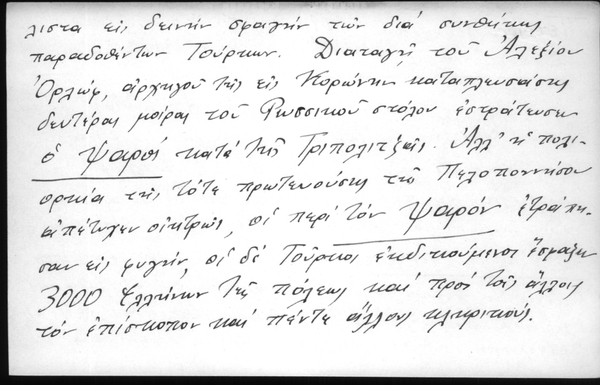 λιστα εἰς δεινήν σφαγήν τῶν διά συνθήκης
παραδοθέντων Τούρκων. Διαταγῇ τοῦ Ἀλεξίου
Ὀρλώφ, ἀρχηγοῦ τῆς εἰς Κορώνην καταπλευσάσης
δευτέρας μοίρας τοῦ Ρωσσικοῦ στόλου ἐστράτευσεν
ὁ Ψαρός κατά τῆς Τριπολιτζᾶς. Ἀλλ' ἡ πολι-
ορκία τῆς τότε πρωτευούσης τῆς Πελοποννήσου
ἀπέτυχεν οἰκτρῶς, οἱ περί τόν Ψαρόν ἐτράπη-
σαν εἰς φυγήν, οἱ δέ Τοῦρκοι ἐκδικούμενοι ἔσφαξαν
3000 Ἑλλήνων τῆς πόλεως καί πρός τοῖς ἄλλοις
τόν ἐπίσκοπον καί πέντε ἄλλους κληρικούς.